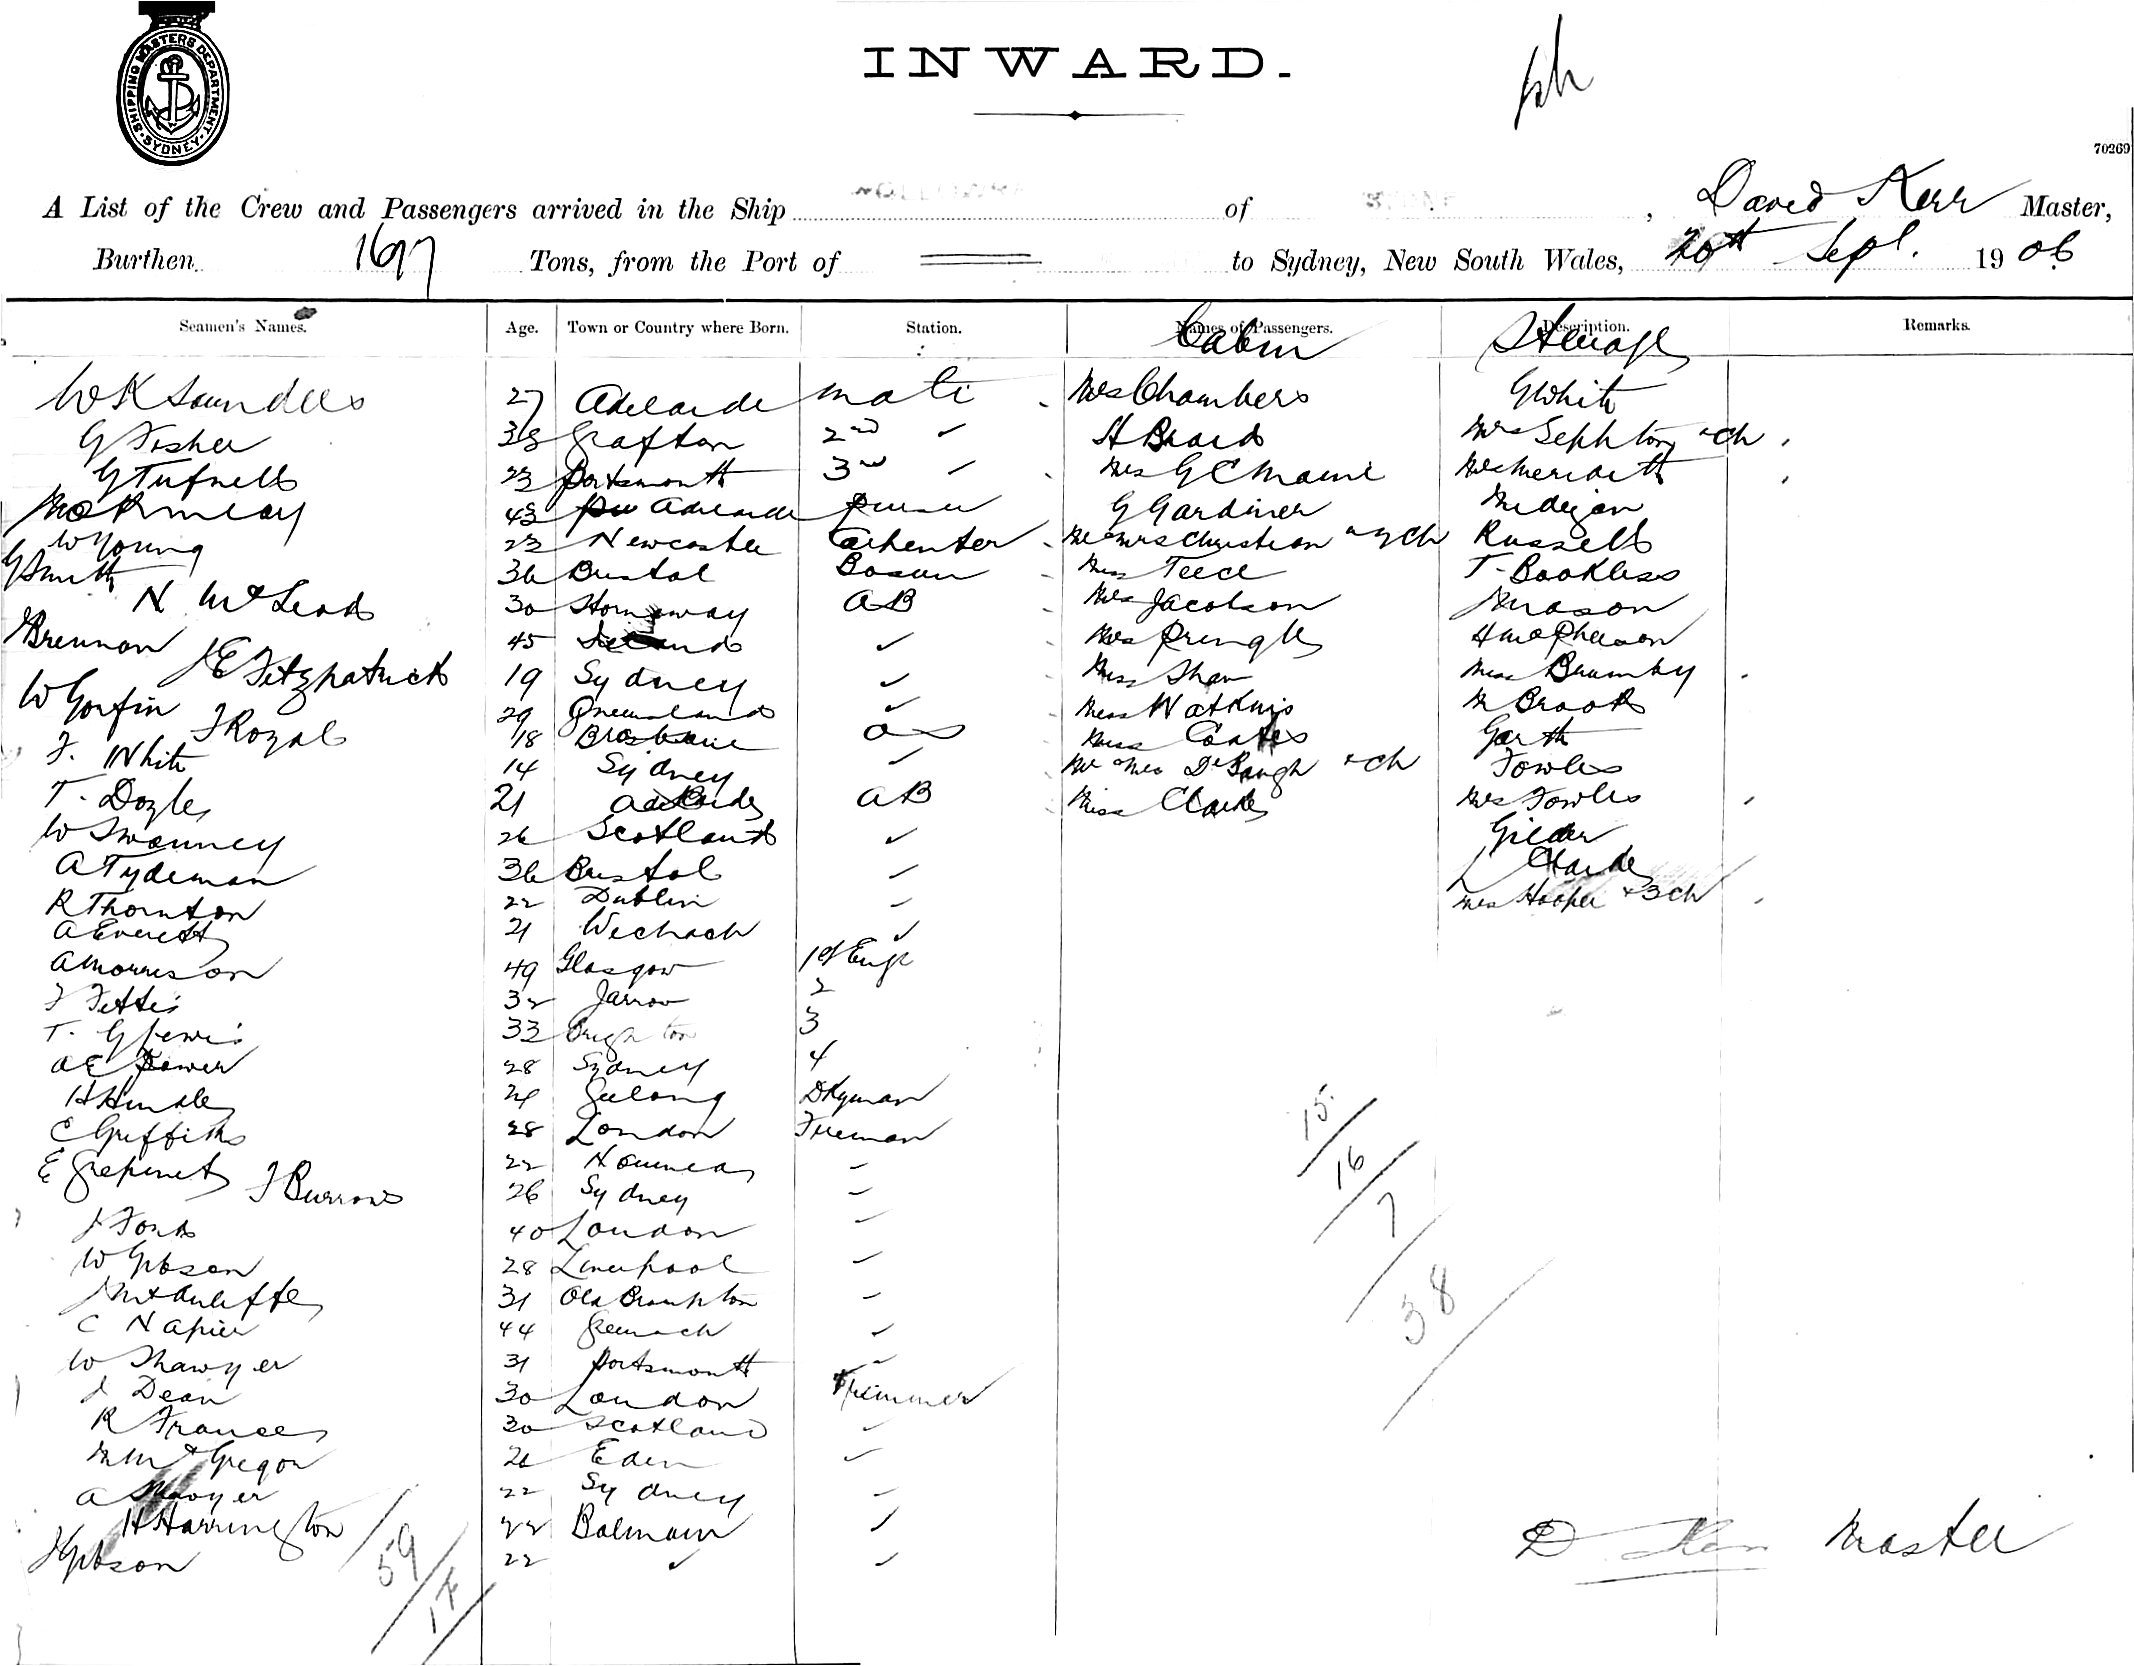 SHIPPING MASTERS DEPARTMENT. SYDNEY
INWARD.
70269
A List of the Crew and Passengers arrived in the Ship of , David Kerr Master,
Burthen 1697 Tons, from the Port of to Sydney, New South Wales, 20th Sept. 1906
Seamen's Names. Age. Town or Country where Born. Station. Names of Passengers. Description. Remarks.
Cabin Steerage
W K Saunders 27 Adelaide mate Mrs Chambers G White
G Fisher 38 Grafton 2nd ✓ H Beard Mrs Sephton & ch
G Tufnell 23 Portsmouth 3rd ✓ Mrs G C Maine Mrs Meredith
43 Adelaide Purser G Gardiner Madigan
W Young 23 Newcastle Carpenter Mr & Mrs Christian & ch Russell
G Smith 36 Bristol Bosun Miss Teece T. Bookless
N McLeod 30 Stornaway AB Mrs Jacobson J Mason
J Brennan 45 Ireland ✓ Mrs Pringle H McPherson
J E Fitzpatrick 19 Sydney ✓ Miss Shaw Miss Brumby
W Gorfin 29 Queensland ✓ Miss Watkins M Brook
F Royal 18 Brisbane OS Miss Coates Garth
F. White 14 Sydney ✓ Mr & Mrs & ch Fowles
T. Doyle 21 Adelaide AB Miss Clarke Mrs Fowles
W Swanney 26 Scotland ✓ Gilder
A Tydeman 36 Bristol ✓
R Thornton 22 Dublin ✓ Mrs Hooper & 3 ch
A Everett 21 ✓
A Morrison 49 Glasgow 1st Engr
F Fettis 32 Jarrow 2
T. G Lewis 33 Brighton 3
A E Power 28 Sydney 4
H Hindle Geelong Dkyman
C Griffiths 28 London Fireman
E 22 Noumea ✓
F Burrows 26 Sydney ✓
J Ford 40 London ✓
W Gibson 28 Liverpool ✓
J McAuliffe 31 Old Brompton ✓
C Napier 44 Greenock ✓
W Thawyer 31 Portsmouth ✓
J Dean 30 London Trimmer
R Frances 30 Scotland ✓
M McGregor Eden ✓
A 22 Sydney ✓
H Harrington 22 Balmain ✓
J Gibson 22 ✓ ✓
15
16
7
38
59
17
D Kerr Master